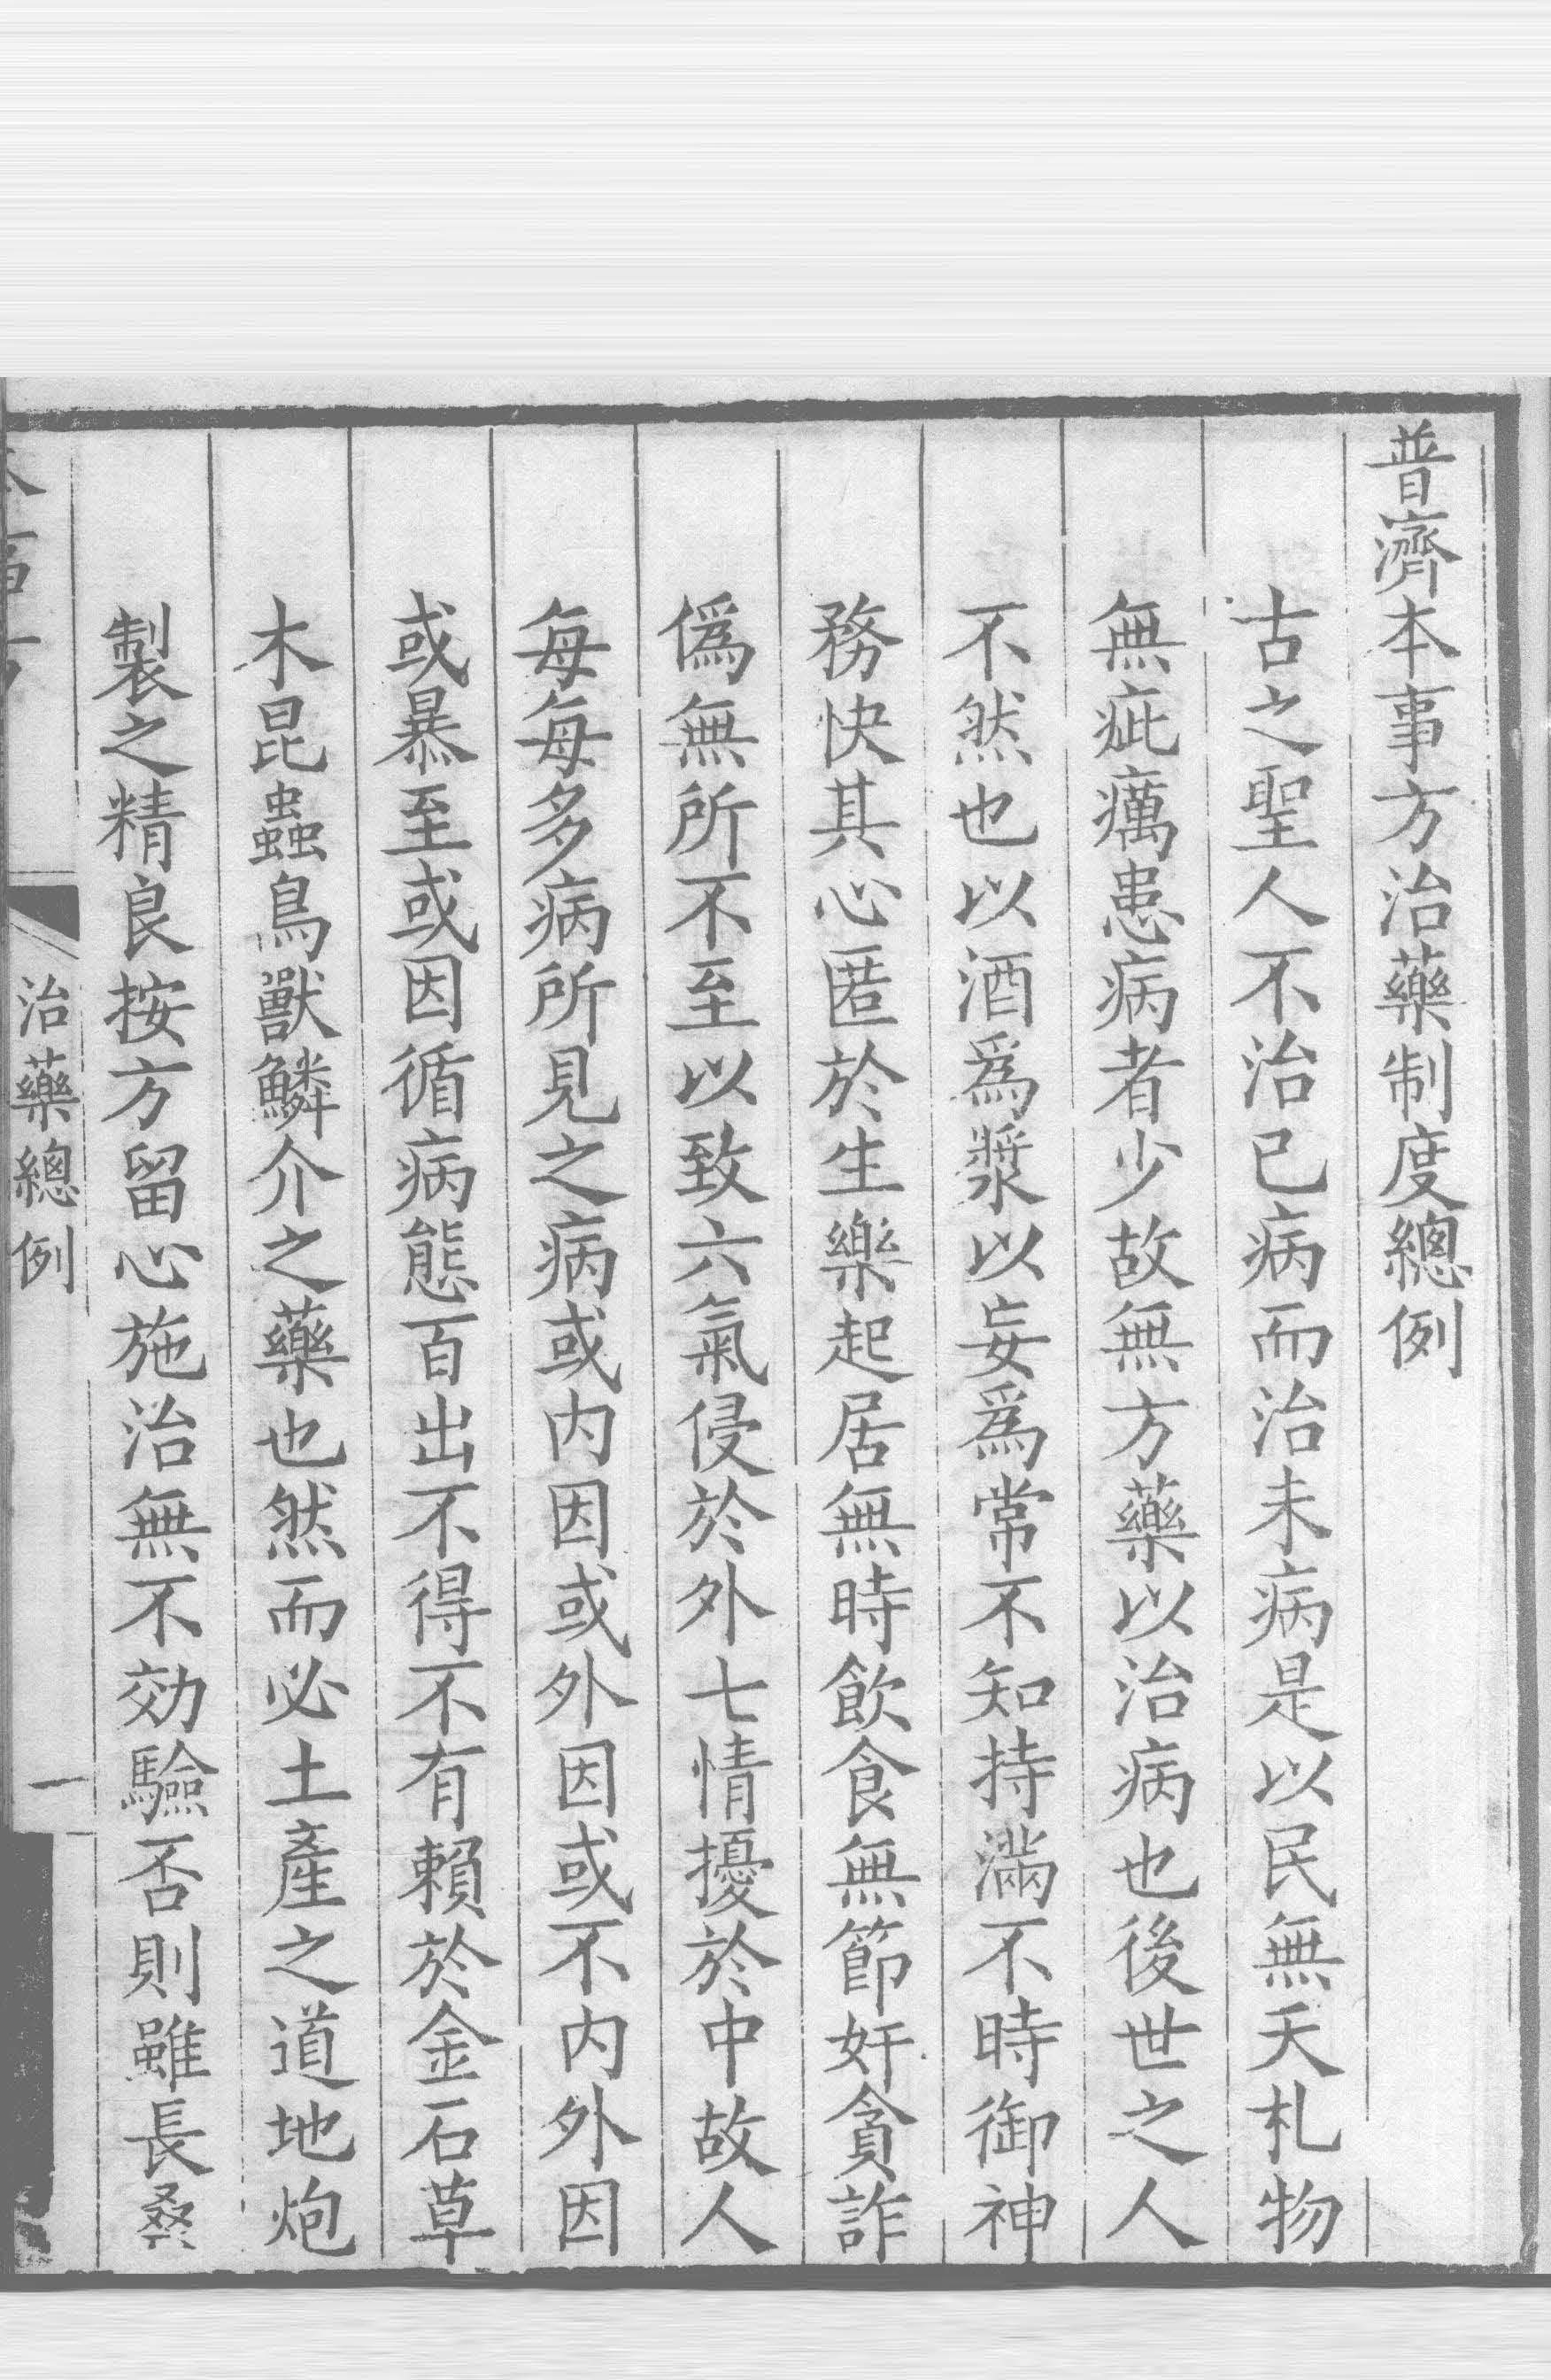 普濟本事方治藥制度總例
古之聖人不治已病而治未病是以民無夭札物
無疵癘患病者少故無方藥以治病也後世之人
不然也以酒爲漿以妄爲常不知持滿不時御神
務快其心匿於生樂起居無時飲食無節奸貪詐
僞無所不至以致六氣侵於外七情擾於中故人
每每多病所見之病或内因或外因或不内外因
或暴至或因循病態百出不得不有賴於金石草
木昆蟲鳥獸鱗介之藥也然而必土產之道地炮
製之精良按方留心施治無不効驗否則雖長桑
治藥總例
一